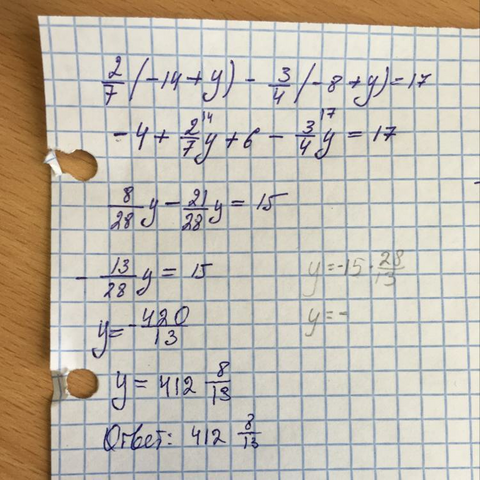 2/7 (-14+y) - 3/4 (-8+y) = 17
14 17
-4 + 2/7 y + 6 - 3/4 y = 17
8/28 y - 21/28 y = 15
- 13/28 y = 15
y = -15 · 28/13
y = - 420/13
y = -
y = 412 8/13
Ответ: 412 8/13